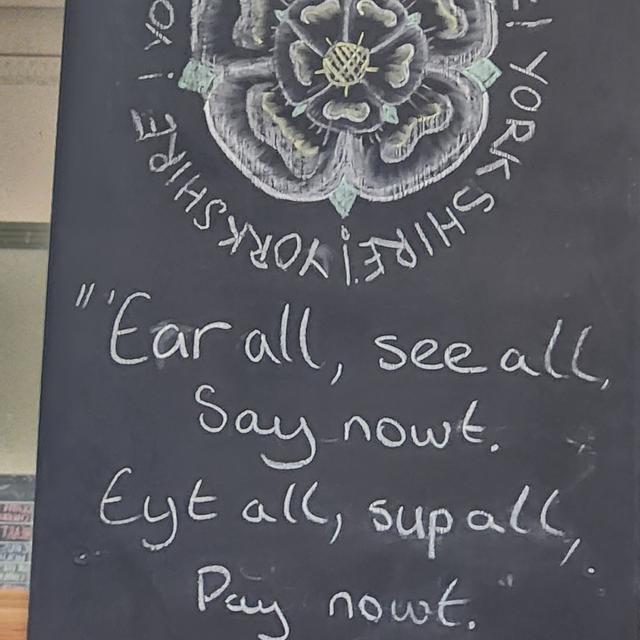 YORKSHIRE! YORKSHIRE! YORKSHIRE! YO
"'Ear all, see all,
Say nowt.
Eyt all, sup all,
Pay nowt."